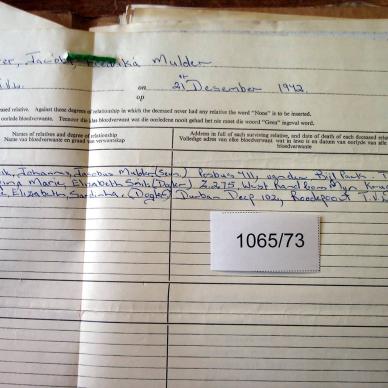 Jacoba, Mulder
on
op
21st Desember 1972
ceased relative. Against those degrees of relationship in which the deceased never had any relative the word "None" is to be inserted.
oorlede bloedverwante. Teenoor dié klas bloedverwant wat die oorledene nooit gehad het nie moet die woord "Geen" ingevul word.
Names of relatives and degree of relationship
Name van bloedverwante en graad van verwantskap
Address in full of each surviving relative, and date of death of each deceased relative
Volledige adres van elke bloedverwant wat in lewe is en datum van oorlyde van alle
bloedverwante
Johannes, Jacobus Mulder (Seun) Posbus 411,
Maria, Elizabeth Smit (Dogter) Z.275, West Rand
Elizabeth, (Dogter) Durban Deep 102, Roodepoort T.V.
1065/73